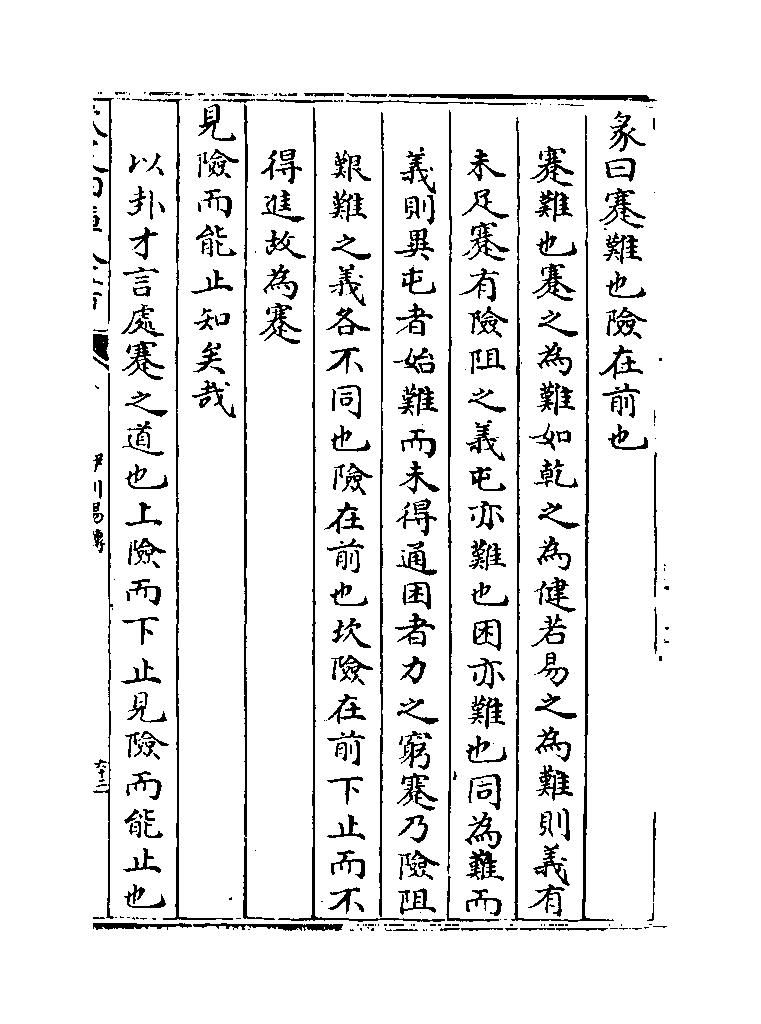 彖曰蹇難也險在前也
蹇難也蹇之為難如乾之為健若易之為難則義有
未足蹇有險阻之義屯亦難也困亦難也同為難而
義則異屯者始難而未得通困者力之窮蹇乃險阻
艱難之義各不同也險在前也坎險在前下止而不
得進故為蹇
見險而能止知矣哉
以卦才言處蹇之道也上險而下止見險而能止也
伊川易傳
六十二